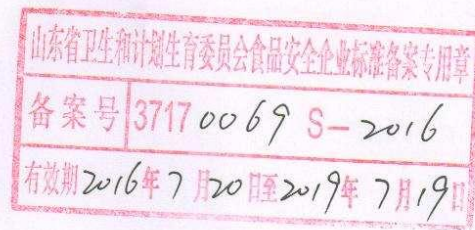 山东省卫生和计划生育委员会食品安全企业标准备案专用章
备案号 3717 0069 S-2016
有效期2016年7月20日至2019年7月19日